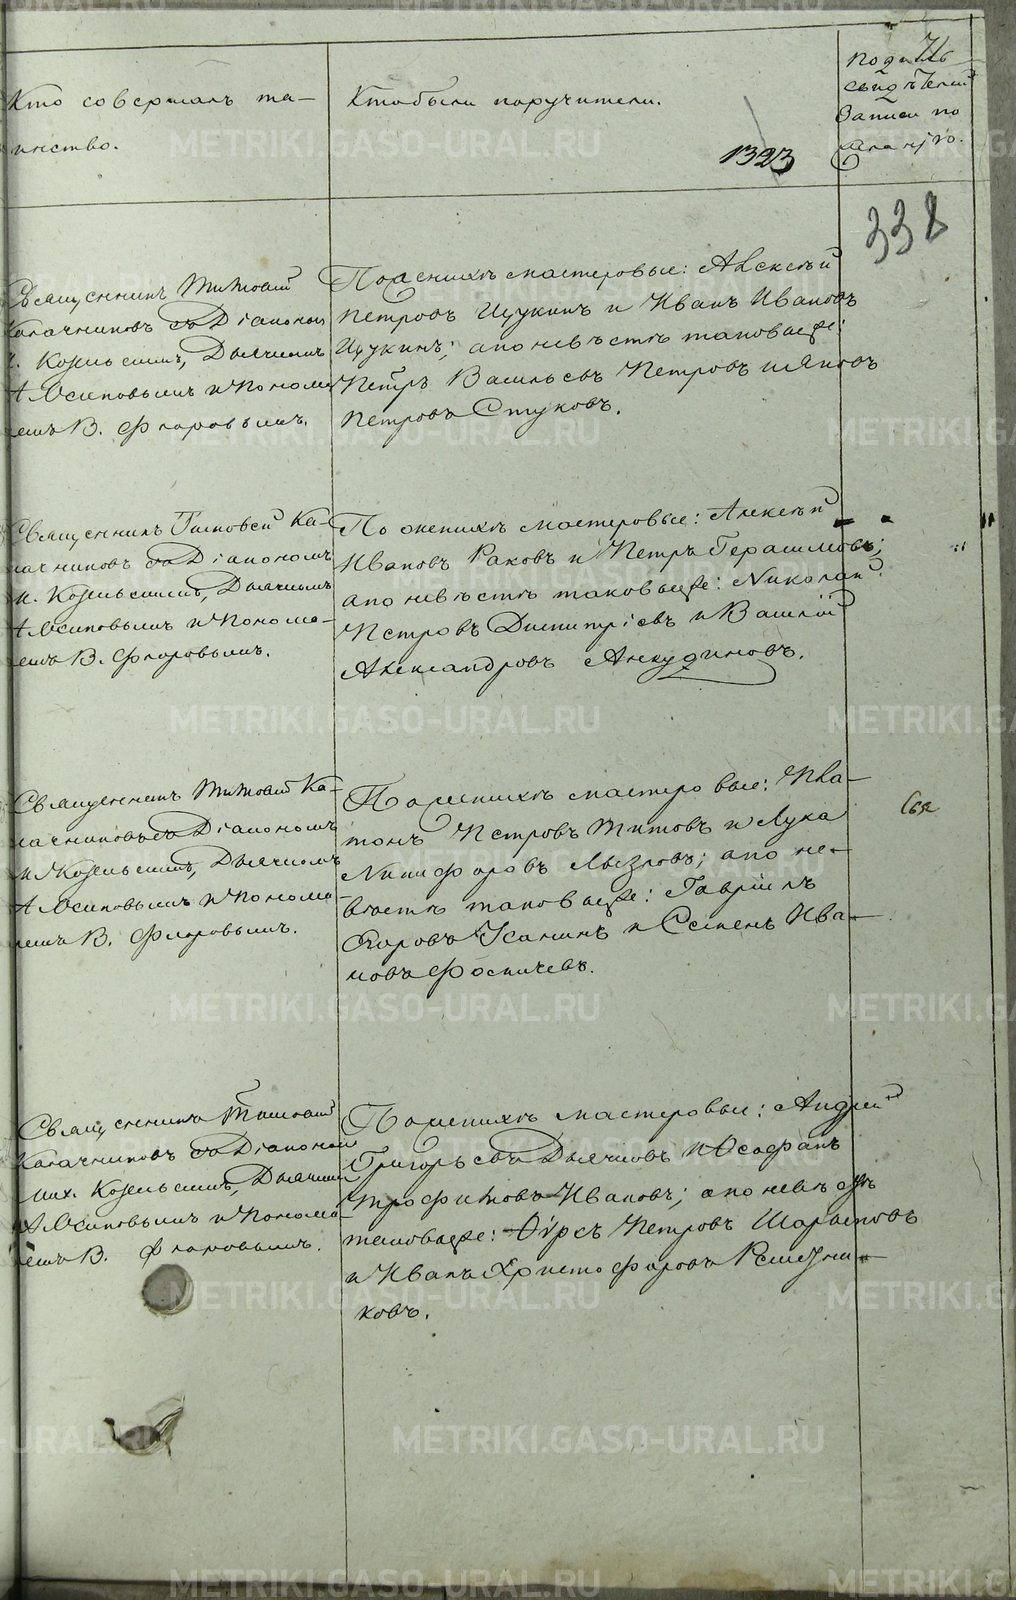 Кто совершалъ та-
инство.
Кто были поручители.
Подпись
свидѣтелей
записи по
1323
338
Священникъ Тимоѳей
Калачниковъ съ Діакономъ
М. Козельскимъ, Дьячкомъ
А. Осиповымъ и Понома
remъ В. Флоровымъ.
По женихѣ мастеровые: Алексѣй
Петровъ Щукинъ и Иванъ Ивановъ
Щукинъ; а по невѣстѣ таковые же:
Петръ Васильевъ Петровъ и Яковъ
Петровъ Стуковъ.
Священникъ Тимоѳей Ка-
лачниковъ съ Діакономъ
М. Козельскимъ, Дьячкомъ
А. Осиповымъ и Понома-
ремъ В. Флоровымъ.
По женихѣ мастеровые: Алексѣй
Ивановъ Раковъ и Петръ Герасимовъ;
а по невѣстѣ таковые же: Николай
Петровъ Димитріевъ и Василій
Александровъ Анкудиновъ.
Священникъ Тимоѳей Ка-
лачниковъ съ Діакономъ
М. Козельскимъ, Дьячкомъ
А. Осиповымъ и Понома
ремъ В. Флоровымъ.
По женихѣ мастеровые: Пла-
тонъ Петровъ Титовъ и Лука
Никифоровъ Лызловъ; а по не-
вѣстѣ таковые же: Гавріилъ
Егоровъ Усанинъ и Семенъ Ива-
новъ Фоминевъ.
Священникъ Тимоѳей
Калачниковъ съ Діакономъ
Мих. Козельскимъ, Дьячкомъ
А. Осиповымъ и Понома-
ремъ В. Флоровымъ.
По женихѣ мастеровые: Андрей
Григорьевъ Дьячковъ и Осафатъ
Трофимовъ Ивановъ; а по невѣстѣ
таковые же: Ѳирсъ Петровъ Шараповъ
и Иванъ Христофоровъ Решетни-
ковъ.
METRIKI.GASO-URAL.RU